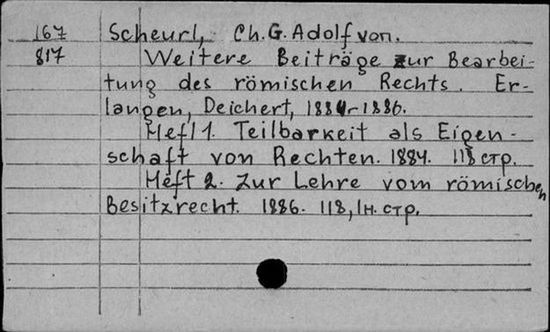 167 Scheurl, Ch. G. Adolf von.
817 Weitere Beiträge zur Bearbei-
tung des römischen Rechts. Er-
langen, Deichert, 1884-1886.
Heft 1. Teilbarkeit als Eigen-
schaft von Rechten. 1884. 118 стр.
Heft 2. Zur Lehre vom römischen
Besitzrecht. 1886. 118, 1 н. стр.